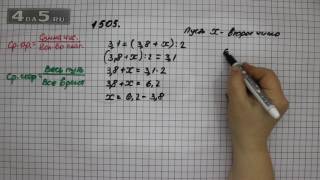 4DA5.RU
№ 1505.
Пусть x - второе число
Ср. ар. = Сумма чис. / Кол-во слаг.
3,1 = (3,8 + x) : 2
(3,8 + x) : 2 = 3,1
Ср. скор = Весь путь / Все время
3,8 + x = 3,1 · 2
3,8 + x = 6,2
x = 6,2 - 3,8